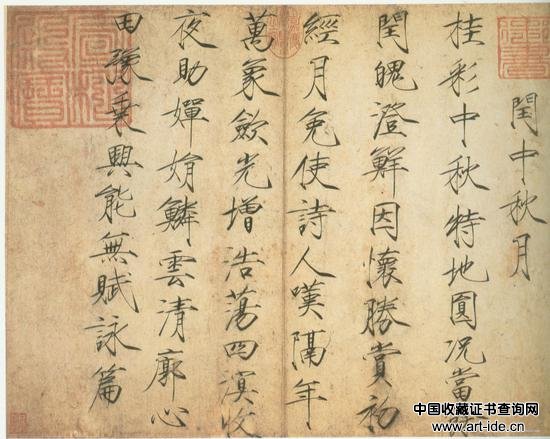 閏中秋月
桂彩中秋特地圓況當
閏魄澄鮮因懷勝賞初
經月免使詩人嘆隔年
萬象歛光增浩蕩四溟收
夜助嬋娟鱗雲清廓心
田豫乘興能無賦詠篇
中国收藏证书查询网
www.art-ide.cn